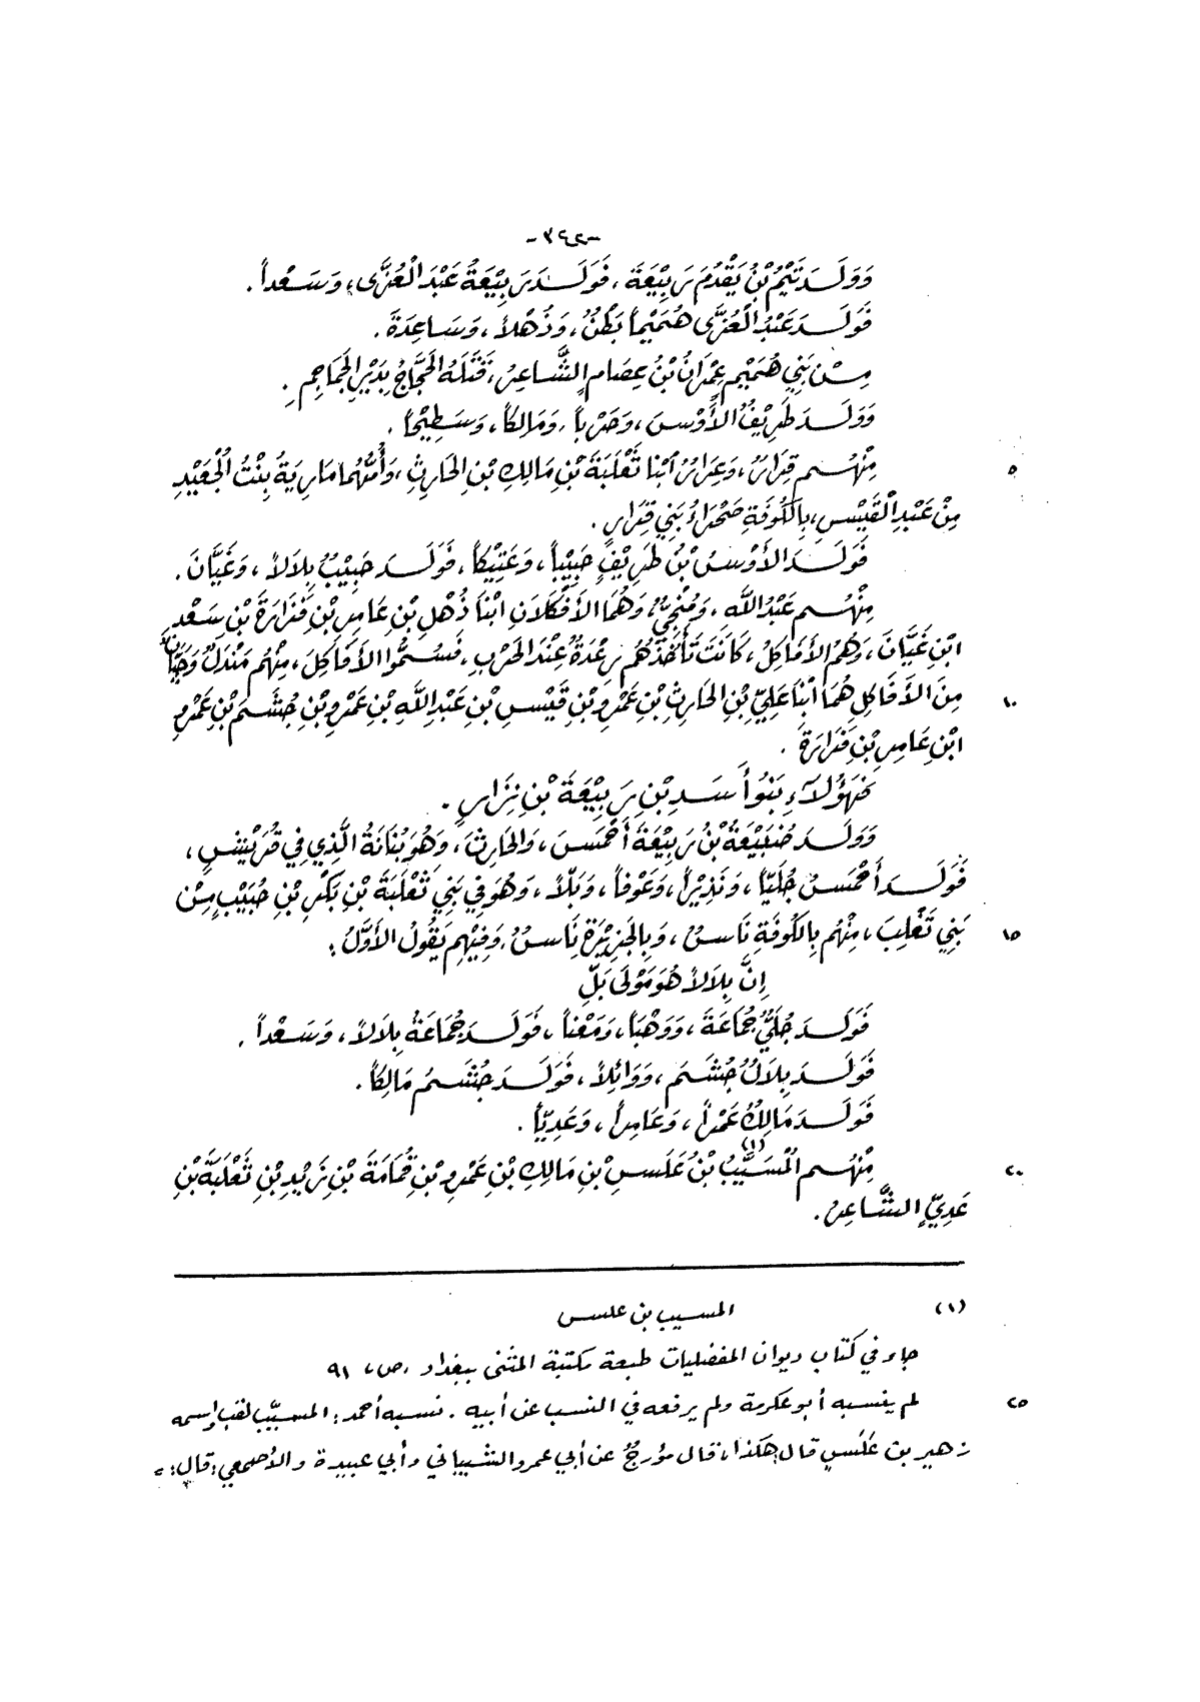 -٣٤٢-
وَوَلَدَ تَيْمُ بْنُ يَقْدُمَ رَبِيْعَةَ ، فَوَلَدَ رَبِيْعَةُ عَبْدَ الْعُزَّى ، وَسَعْداً .
فَوَلَدَ عَبْدُ الْعُزَّى هُمَيْماً بَطْنٌ ، وَذُهْلاً ، وَسَاعِدَةَ .
مِنْ بَنِي هُمَيْمٍ عِمْرَانُ بْنُ عِصَامٍ الشَّاعِرُ ، قَتَلَهُ الحَجَّاجُ بِدَيْرِ الجَمَاجِمِ .
وَوَلَدَ طَرِيْفُ الأَوْسَ ، وَحَرْباً ، وَمَالِكاً ، وَسَطِيْحاً .
٥ مِنْهُم قِرَارٌ ، وَعِرَارٌ ابْنَا ثَعْلَبَةَ بْنِ مَالِكِ بْنِ الحَارِثِ ، وَأُمُّهُمَا مَارِيَةُ بِنْتُ الْجُعَيْدِ
مِنْ عَبْدِ الْقَيْسِ ، بِالكُوفَةِ صَحْرَاءُ بَنِي قِرَارٍ .
فَوَلَدَ الأَوْسُ بْنُ طَرِيْفٍ حَبِيْباً ، وَعَتِيْكاً ، فَوَلَدَ حَبِيْبٌ بِلاَلاً ، وَغَيَّانَ .
مِنْهُم عَبْدُ اللَّهِ ، وَمُنْجِيٌّ ، وَهُمَا الأَفْكَلاَنِ ابْنَا ذُهْلِ بْنِ عَامِرِ بْنِ فَزَارَةَ بْنِ سَعْدِ
ابْنِ غَيَّانَ ، وَهُمُ الأَفَاكِلُ ، كَانَتْ تَأْخُذُهُم رِعْدَةٌ عِنْدَ الحَرْبِ ، فَسُمُّوا الأَفَاكِلَ ، مِنْهُم مَنْدَلٌ وَحِبَّانُ
١٠ مِنَ الأَفَاكِلِ هُمَا ابْنَا عَلِيِّ بْنِ الحَارِثِ بْنِ عَمْرِو بْنِ قَيْسِ بْنِ عَبْدِ اللَّهِ بْنِ عَمْرِو بْنِ جُشَمَ بْنِ عَمْرِو
ابْنِ عَامِرِ بْنِ فَزَارَةَ .
فَهَؤُلاَءِ بَنُو أَسَدِ بْنِ رَبِيْعَةَ بْنِ نِزَارٍ .
وَوَلَدَ ضُبَيْعَةُ بْنُ رَبِيْعَةَ أَحْمَسَ ، وَالحَارِثَ ، وَهُوَ بُنَانَةُ الَّذِي فِي قُرَيْشٍ ،
فَوَلَدَ أَحْمَسُ جُلَيّاً ، وَنَذِيْراً ، وَعَوْفاً ، وَبَلاًّ ، وَهُوَ فِي بَنِي ثَعْلَبَةَ بْنِ بَكْرِ بْنِ حُبَيْبٍ مِنْ
١٥ بَنِي تَغْلِبَ ، مِنْهُم بِالكُوفَةِ نَاسٌ ، وَبِالجَزِيْرَةِ نَاسٌ ، وَفِيْهِم يَقُولُ الأَوَّلُ :
إِنَّ بِلاَلاً هُوَ مَوْلَى بَلِّ
فَوَلَدَ جُلَيٌّ جُمَاعَةَ ، وَوَهْباً ، وَمَعْناً ، فَوَلَدَ جُمَاعَةُ بِلاَلاً ، وَسَعْداً .
فَوَلَدَ بِلاَلٌ جُشَمَ ، وَوَائِلاً ، فَوَلَدَ جُشَمُ مَالِكاً .
فَوَلَدَ مَالِكٌ عَمْراً ، وَعَامِراً ، وَعَدِيّاً .
٢٠ مِنْهُم الْمُسَيَّبُ(١) بْنُ عَلَسِ بْنِ مَالِكِ بْنِ عَمْرِو بْنِ قُمَامَةَ بْنِ زَيْدِ بْنِ ثَعْلَبَةَ بْنِ
عَدِيٍّ الشَّاعِرُ .
(١) المسيب بن علس
جاء في كتاب ديوان المفضليات طبعة مكتبة المثنى ببغداد ، ص ، ٩١
٢٥ لم ينسبه أبو عكرمة ولم يرفعه في النسب عن أبيه . نسبه أحمد : المسيّب لقب واسمه
زهير بن عَلَسٍ قال هكذا ، قال مؤرجٌ عن أبي عمرو الشيباني وأبي عبيدة والأصمعي : قال : =